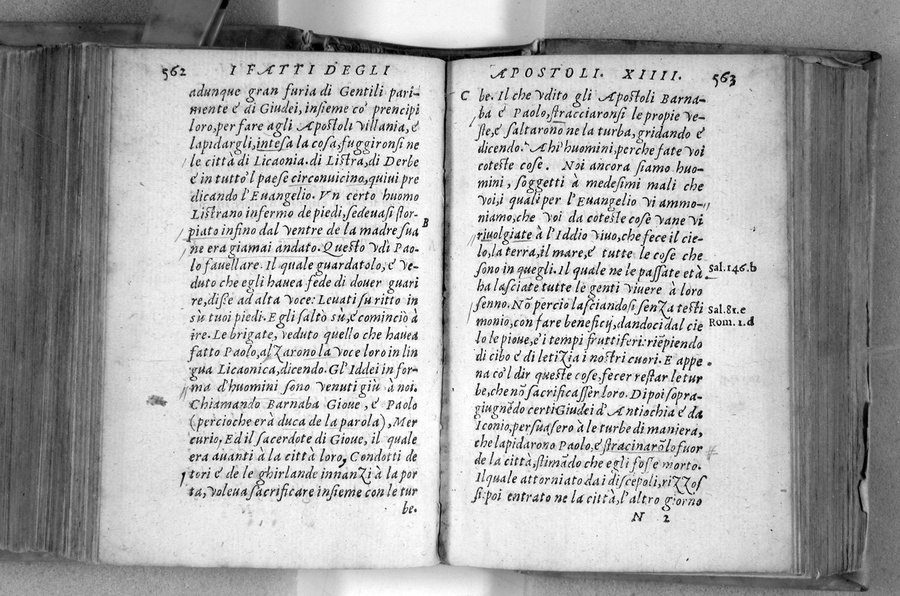 562
I FATTI DEGLI
adunque gran furia di Gentili pari-
mente e di Giudei, insieme co' prencipi
loro, per fare agli Apostoli villania, e
lapidargli, intesa la cosa, fuggironsi ne
le città di Licaonia. di Listra, di Derbe
e in tutto'l paese circonuicino, quiui pre
dicando l'Euangelio. Vn certo huomo
Listrano infermo de piedi, sedeuasi stor-
piato infino dal ventre de la madre sua
B
ne era giamai andato. Questo vdì Pao-
lo fauellare. Il quale guardatolo, e ve-
duto che egli hauea fede di douer guari
re, disse ad alta voce: Leuati su ritto in
sù tuoi piedi. E egli saltò sù, e cominciò à
ire. Le brigate, veduto quello che hauea
fatto Paolo, alzarono la voce loro in lin
gua Licaonica, dicendo. Gl'Iddei in for-
ma d'huomini sono venuti giù à noi.
Chiamando Barnaba Gioue, e Paolo
(percioche erà duca de la parola), Mer
curio, Ed il sacerdote di Gioue, il quale
era auanti à la città loro, Condotti de
tori e de le ghirlande innanzi à la por
ta, voleua sacrificare insieme con le tur
be.
APOSTOLI. XIIII.
563
C
be. Il che vdito gli Apostoli Barna-
ba e Paolo, stracciaronsi le propie ve-
ste, e saltarono ne la turba, gridando e
dicendo. Ahi huomini, perche fate voi
coteste cose. Noi ancora siamo huo-
mini, soggetti à medesimi mali che
voi, i quali per l'Euangelio vi ammo-
niamo, che voi da coteste cose vane vi
riuolgiate à l'Iddio viuo, che fece il cie-
lo, la terra, il mare, e tutte le cose che
sono in quegli. Il quale ne le passate età
Sal.146.b
ha lasciate tutte le genti viuere à loro
senno. Nõ perciò lasciandosi senza testi
Sal.81.e
monio, con fare beneficij, dandoci dal cie
Rom.1.d
lo le pioue, e i tempi fruttiferi: riepiendo
di cibo e di letizia i nostri cuori. E appe
na co'l dir queste cose, fecer restar le tur
be, che nõ sacrificasser loro. Dipoi sopra-
giugnẽdo certi Giudei d'Antiochia e da
Iconio, persuasero à le turbe di maniera,
che lapidarono Paolo, e stracinarõlo fuor
de la città, stimãdo che egli fosse morto.
Il quale attorniato dai discepoli, rizzos
si: poi entrato ne la città, l'altro giorno
N 2